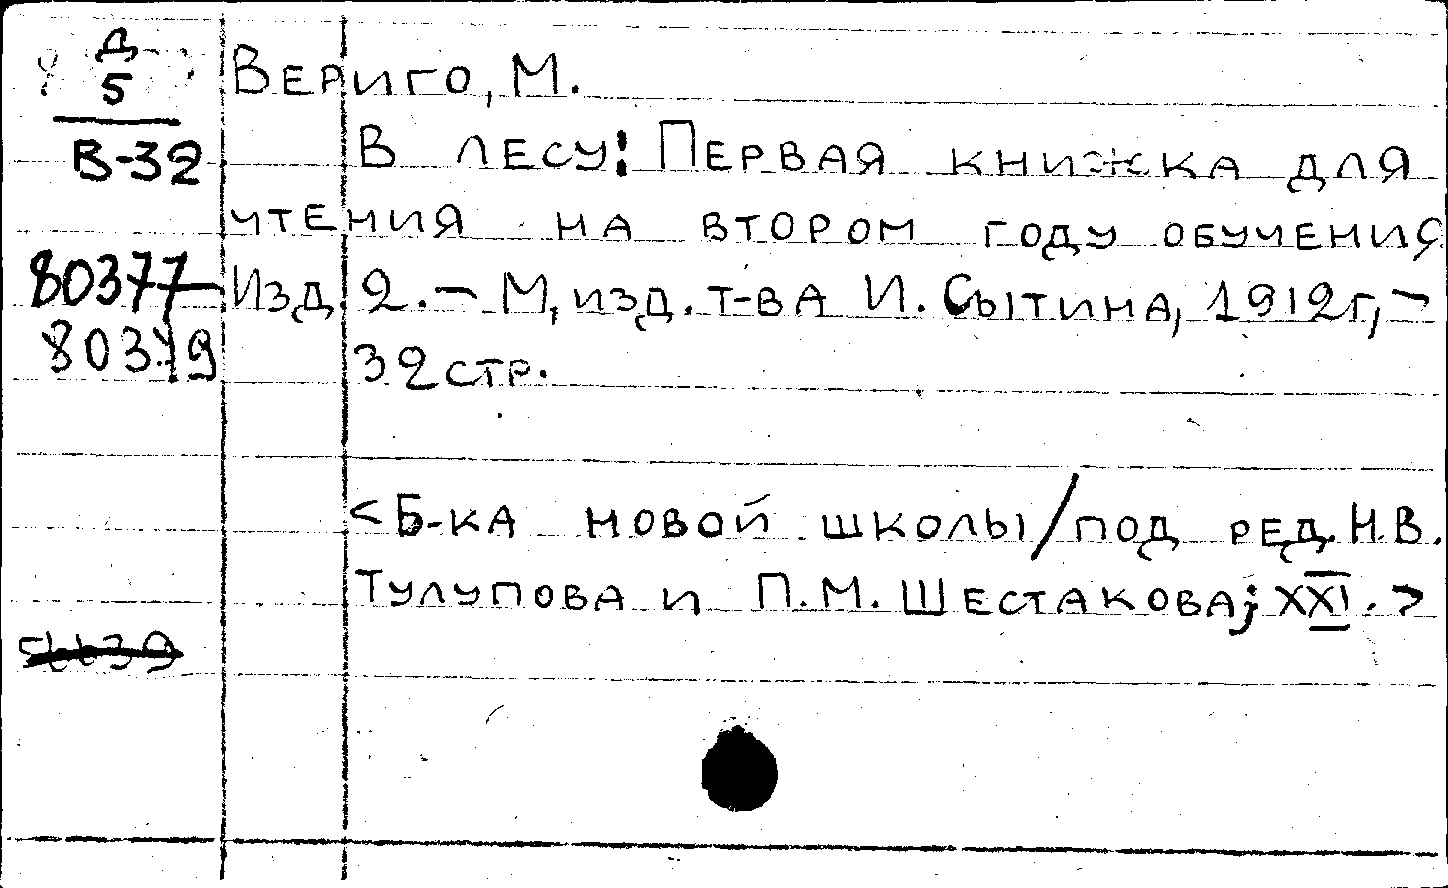 Д
5
В-32
Вериго, М.
В лесу: Первая книжка для
чтения на втором году обучения
80377-
80379
Изд. 2.- М, изд. т-ва И. Сытина, 1912г,-
32стр.
<Б-ка новой школы/под ред. Н.В.
Тулупова и П.М. Шестакова; XXI.>